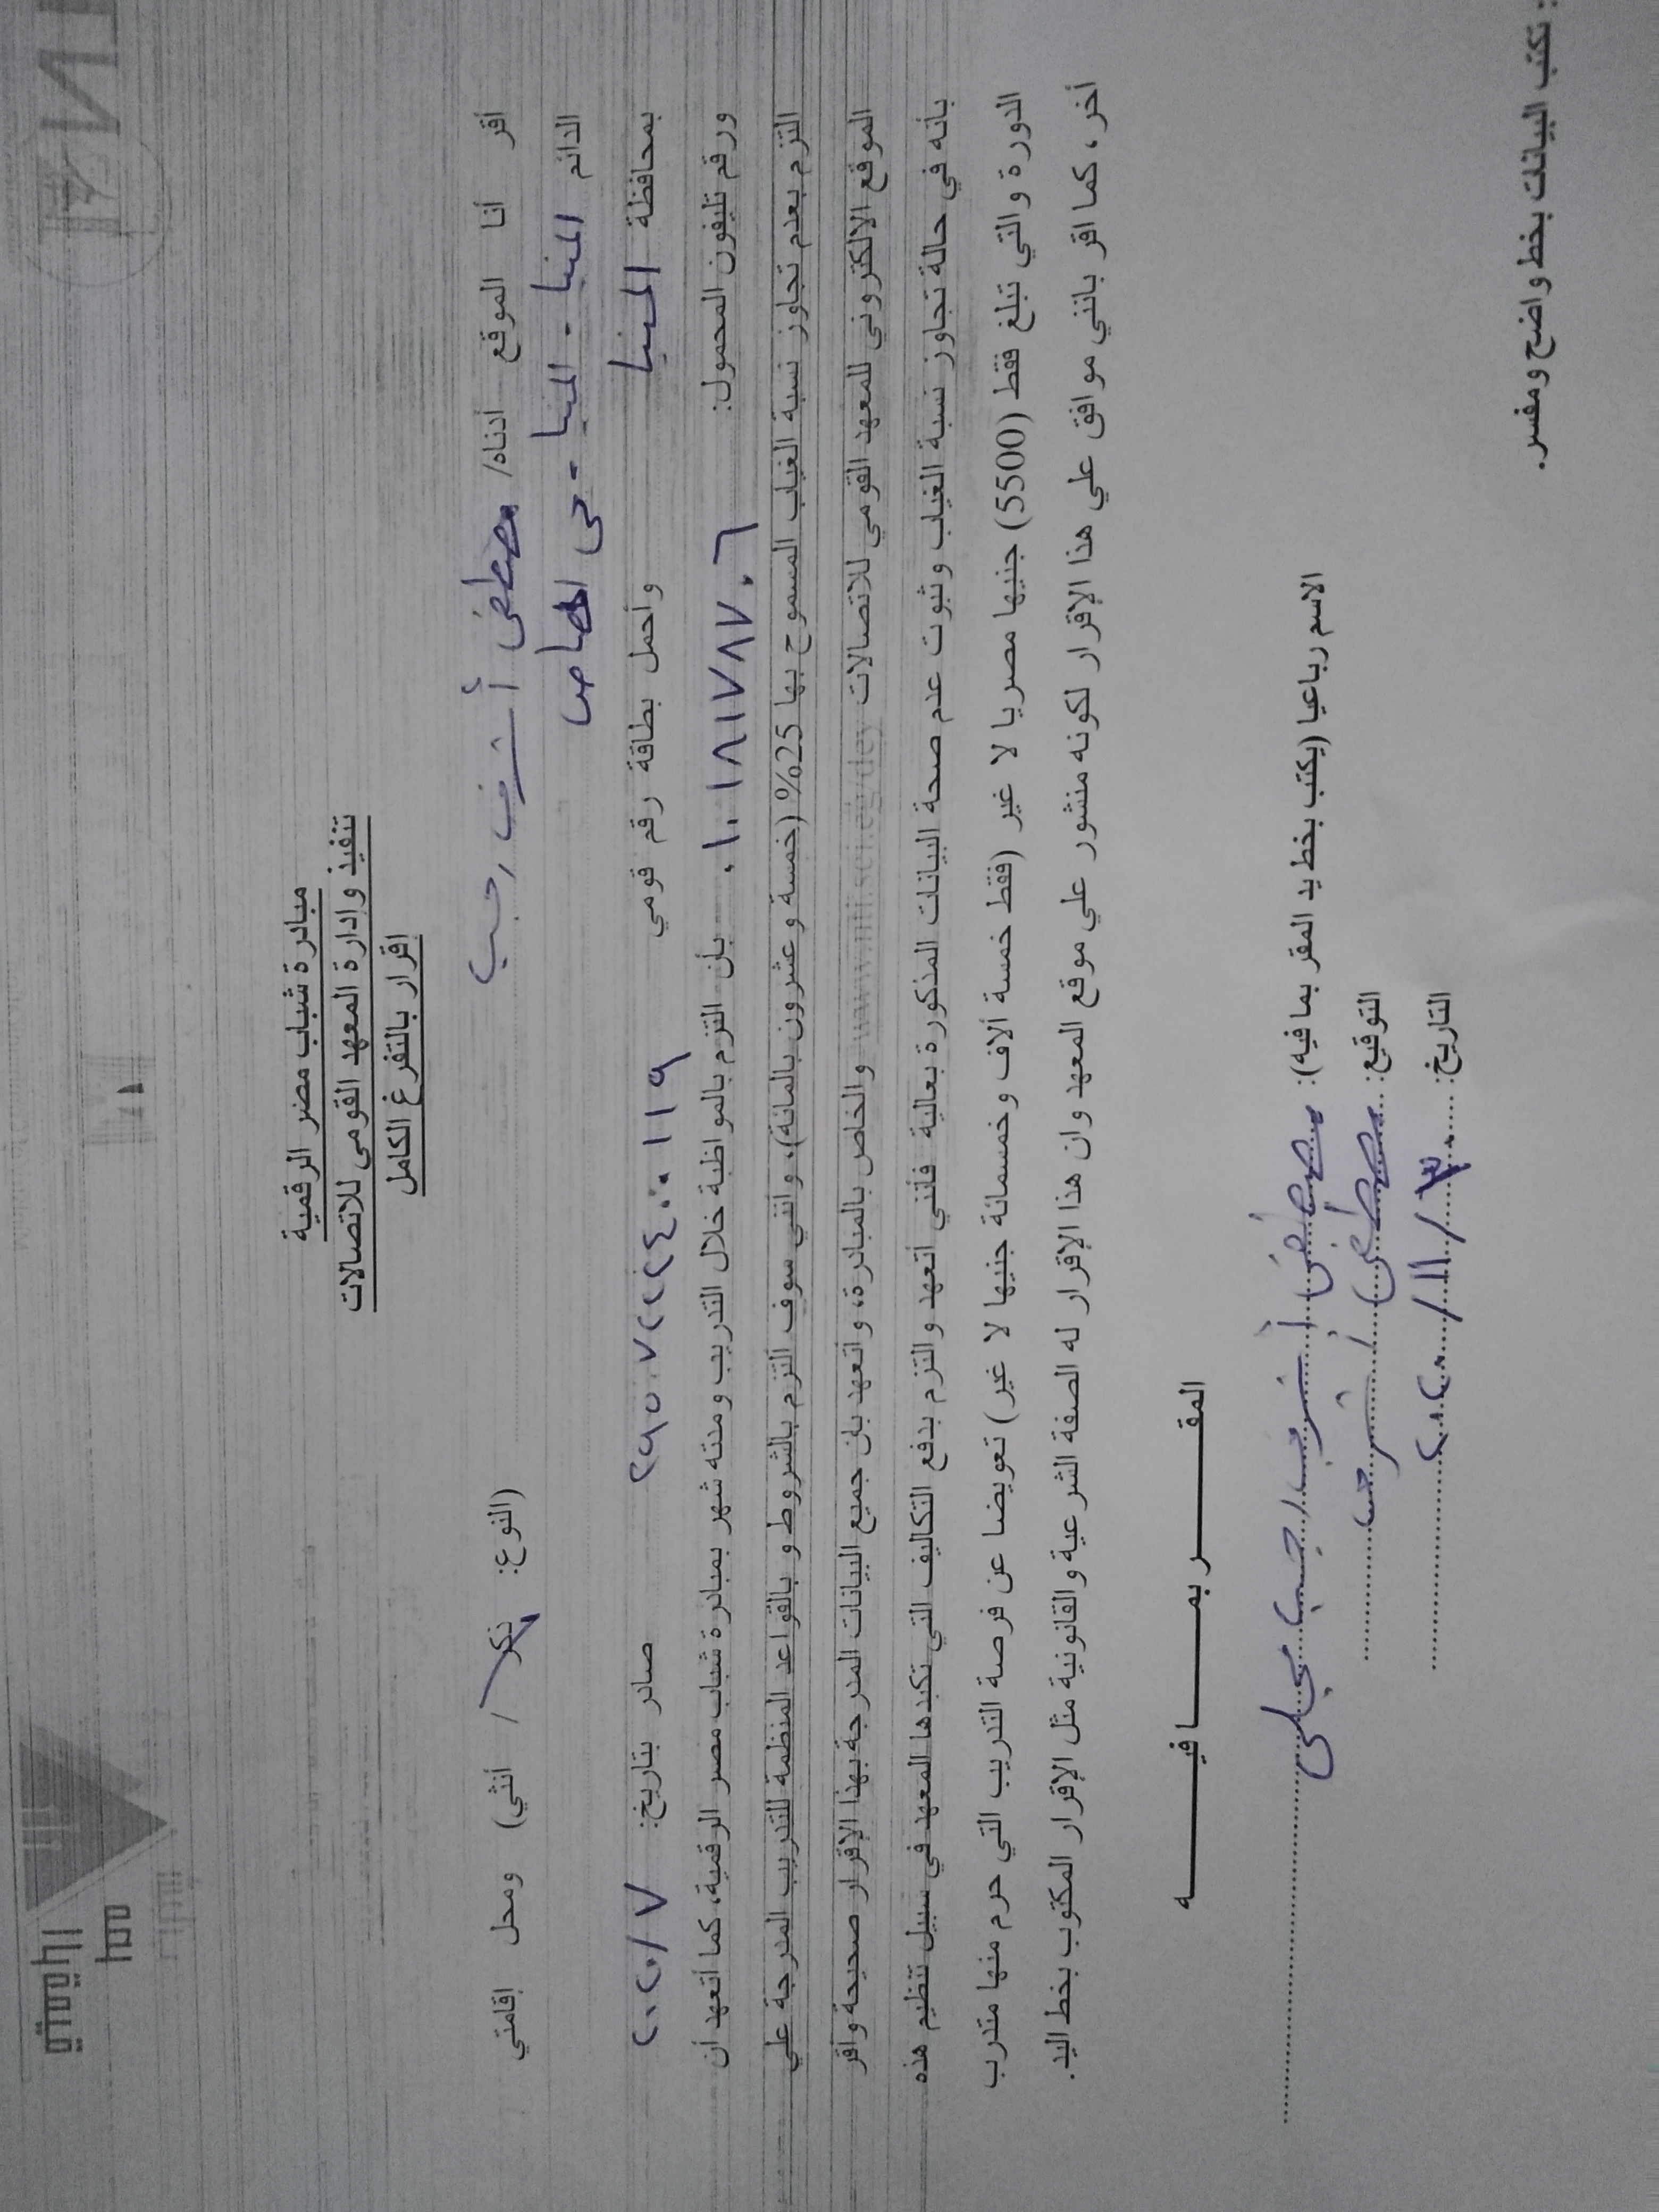 مبادرة شباب مصر الرقمية
تنفيذ وإدارة المعهد القومى للاتصالات
إقرار بالتفرغ الكامل
أقر أنا الموقع أدناه/ مصطفى أشرف رجب (النوع: ذكر / أنثي) ومحل إقامتي
الدائم المنيا - المنيا - حى
بمحافظة المنيا وأحمل بطاقة رقم قومي ٢٩٥٠٧٢٢٢٤٠٠١١٩ صادر بتاريخ: ٢٠٢٠/٧
ورقم تليفون المحمول: ٠١٠١٨١٧٨٧٠٦ بأن التزم بالمواظبة خلال التدريب ومدته شهر بمبادرة شباب مصر الرقمية، كما أتعهد أن
التزم بعدم تجاوز نسبة الغياب المسموح بها 25% (خمسة وعشرون بالمائة)، وأنني سوف ألتزم بالشروط و بالقواعد المنظمة للتدريب المدرجة علي
الموقع الالكتروني للمعهد القومي للاتصالات www.nti.sci.eg/dey والخاص بالمبادرة، وأتعهد بان جميع البيانات المدرجة بهذا الإقرار صحيحة وأقر
بأنه في حالة تجاوز نسبة الغياب وثبوت عدم صحة البيانات المذكورة بعالية فأنني أتعهد والتزم بدفع التكاليف التي تكبدها المعهد في سبيل تنظيم هذه
الدورة والتي تبلغ فقط (5500) جنيها مصريا لا غير (فقط خمسة ألاف وخمسمائة جنيها لا غير) تعويضا عن فرصة التدريب التي حرم منها متدرب
أخر، كما اقر بانني موافق علي هذا الإقرار لكونه منشور علي موقع المعهد وان هذا الإقرار له الصفة الشرعية والقانونية مثل الإقرار المكتوب بخط اليد.
المقـــــر بمـــــا فيـــــه
الاسم رباعيا (يكتب بخط يد المقر بما فيه): مصطفى أشرف رجب مجلى
التوقيع: مصطفى أشرف
التاريخ: ٣٠/١١/٢٠٢٠
: تكتب البيانات بخط واضح ومفسر.